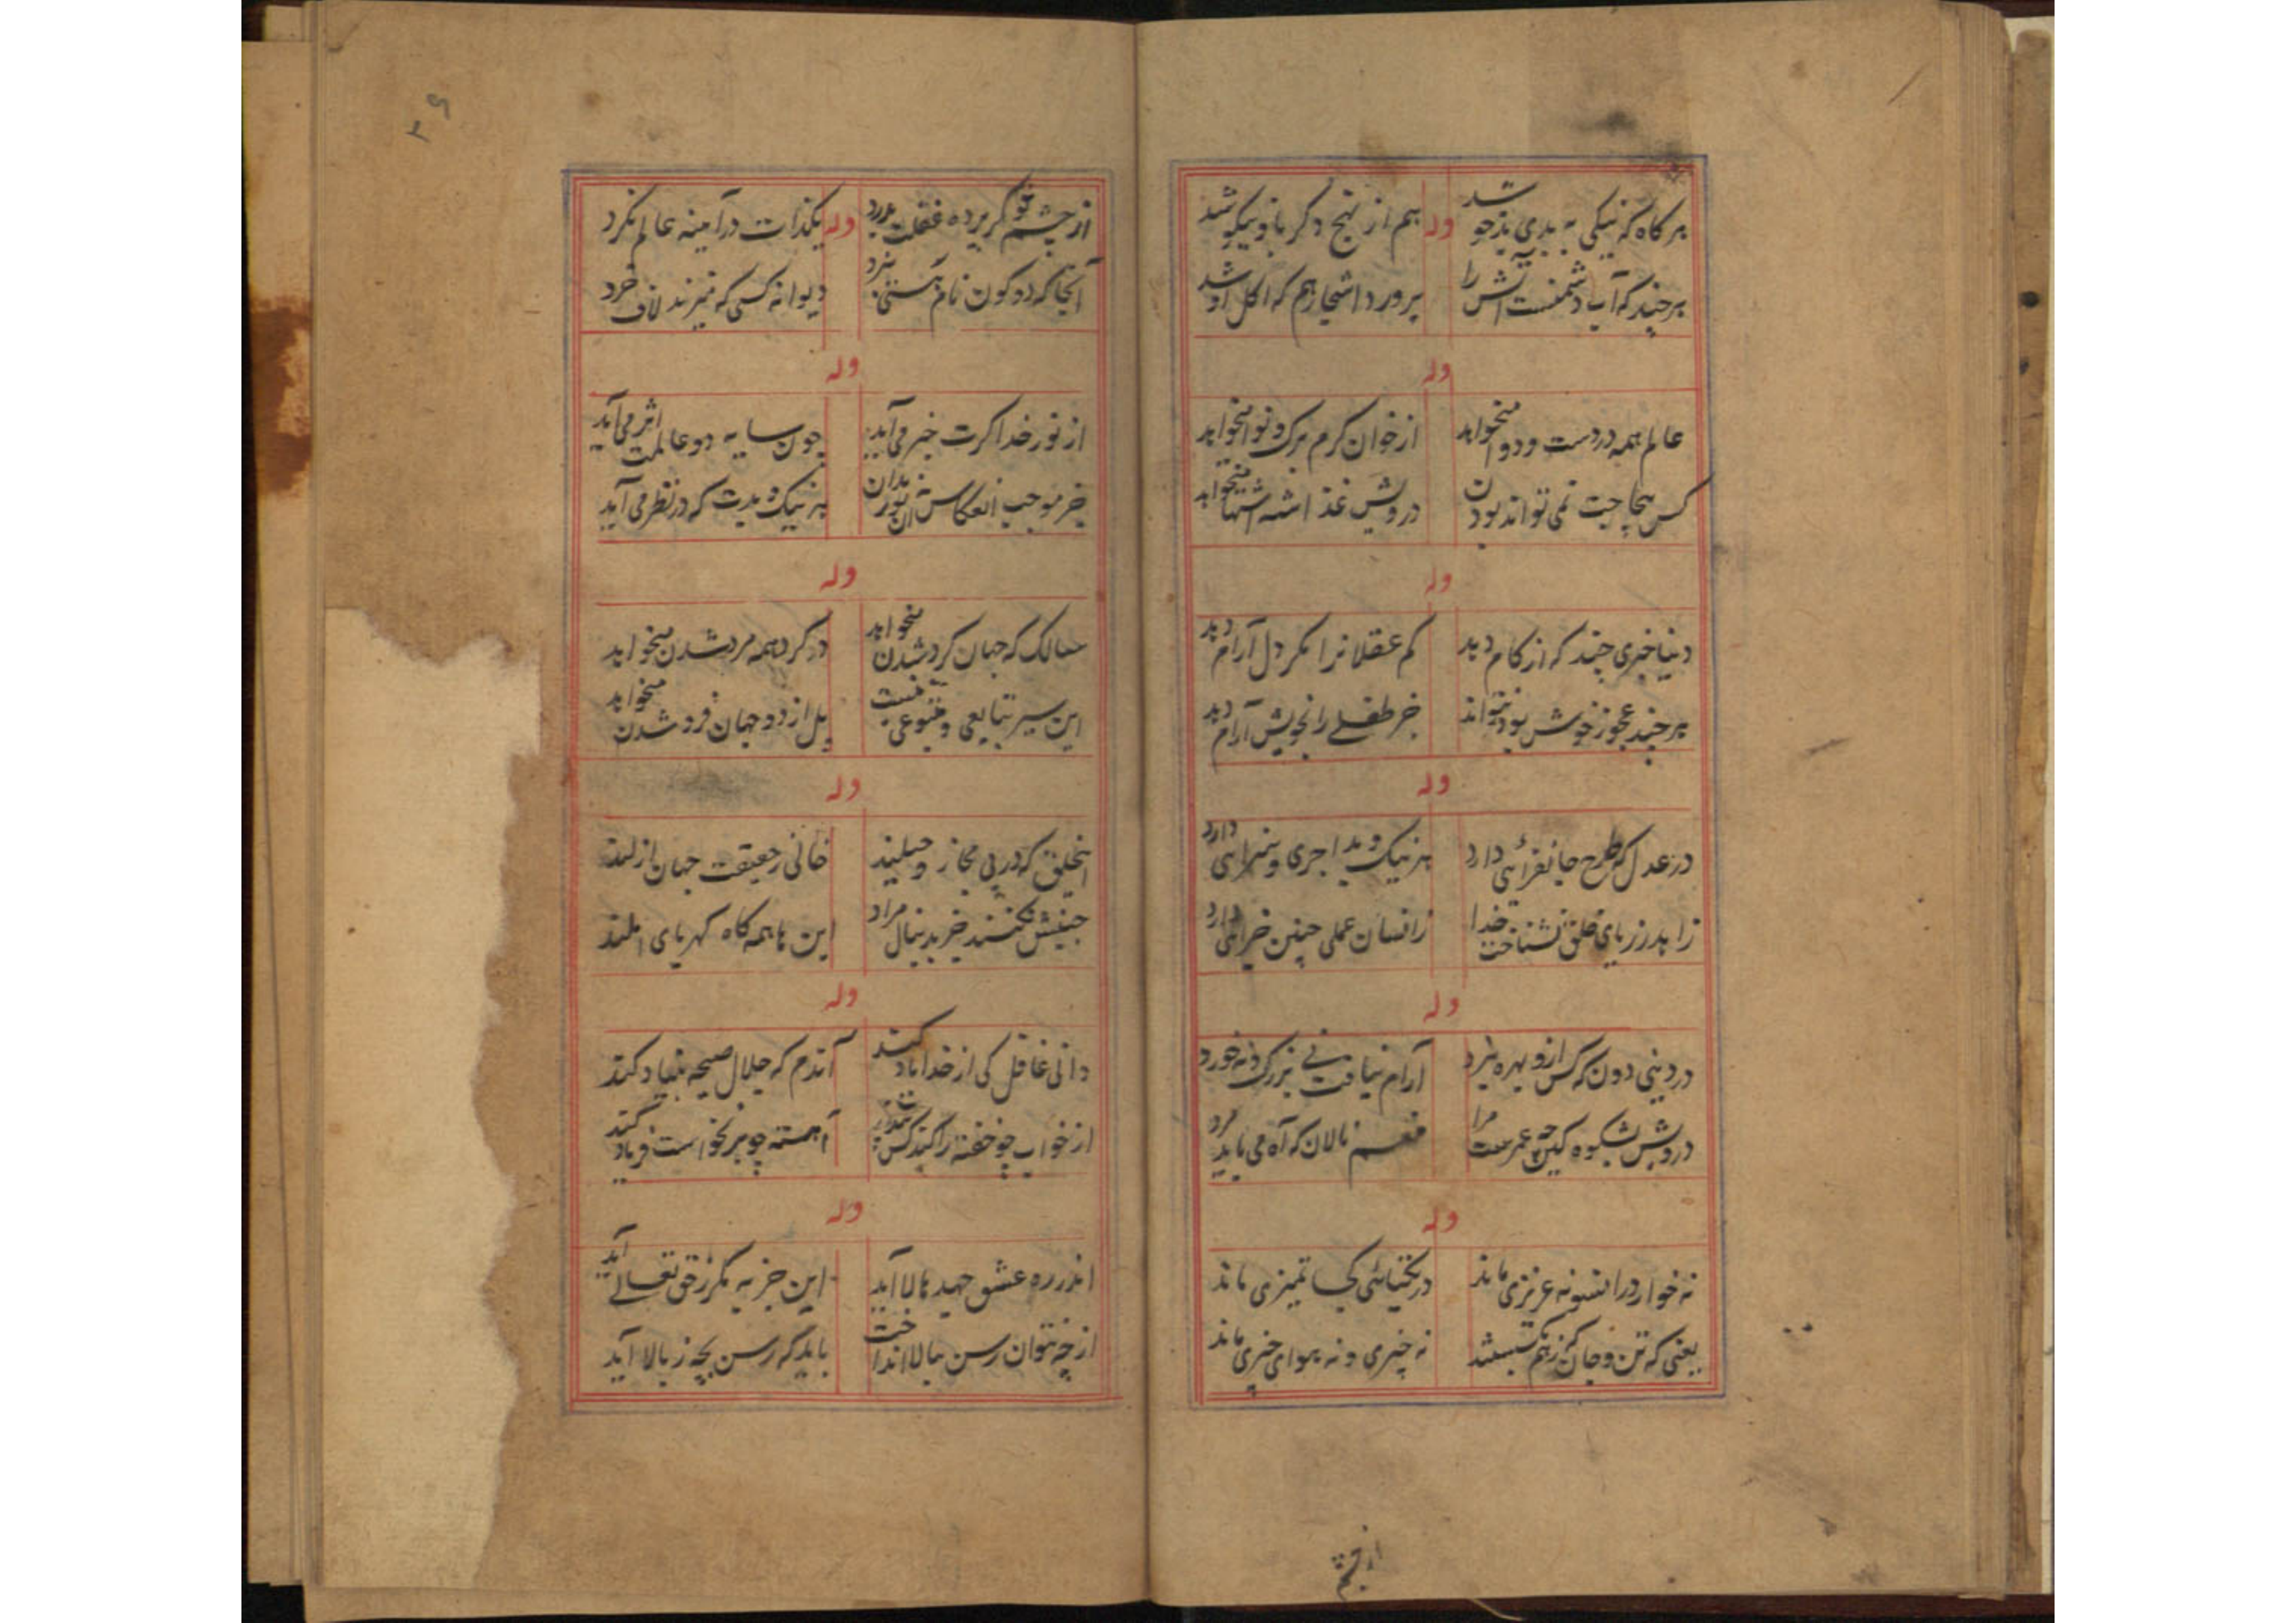 هر کاه که نیکی به بدی بدخو شد
وله
هم از نهج دکر با و نیکو شد
هر چند که آب دشمنست آتش را
پرورد اشجار هم که اکل او شد
وله
عالم همه دردست و دوا میخواهد
از خوان کرم برک و نوا میخواهد
کس بیحاجت نمی تواند بودن
درویش غذا شه اشتها میخواهد
وله
دنیا خبری چند که از کام دهد
کم عقلانرا مکر دل آرام دهد
هر چند عجوز خوش بود نتواند
جز طفلی را بخویش آرام دهد
وله
در عدل که طرح جانفزائی دارد
هر نیک و بد اجری و سزایی دارد
زاهد ز ریای خلق نشناخت خدا
زانسان عملی چنین جزایی دارد
وله
در دنیی دون که کس ازو بهره نبرد
آرام نیافت نی بزرک و نه خورد
درویش بشکوه کین چه عمرست مرا
منعم نالان که آه می باید مرد
وله
نه خوار در آنسو نه عزیزی ماند
در یکتیائی کجا تمیزی ماند
یعنی که تن و جان که ز هم کسستند
نه چیزی و نه هوای چیزی ماند
از چشم
۳۶
از چشم تو کر پرده غفلت بدرد
وله
یکذات در آئینه عالم نکرد
آنجا که دو کون نام هستی نبرد
دیوانه کسی که میزند لاف خرد
وله
از نور خدا کرت خبر می آید
چون سایه دو عالمت اثر می آید
جز موجب انعکاس آن نور بدان
هر نیک و بدیت که در نظر می آید
وله
سالک که جهان کرد شدن میخواهد
در کرد همه مرد شدن میخواهد
این سیر بتابعی و متبوعی نیست
بل از دو جهان فرد شدن میخواهد
وله
اینخلق که در پی مجاز و حیلند
فانی ز حقیقت جهان ازلند
جنبش نکنند جز بدنبال مراد
این ها همه کاه کهربای املند
وله
دانی غافل کی از خدا یاد کند
آندم که جلال صیحه بنیاد کند
از خواب چو خفته را کند کس بیدار
آهسته چو برنخواست فریاد کند
وله
اندر ره عشق جهد مالا آید
این جز به مکر ز حق تعالی آید
از چه نتوان رسن ببالا انداخت
باید که رسن بچه ز بالا آید